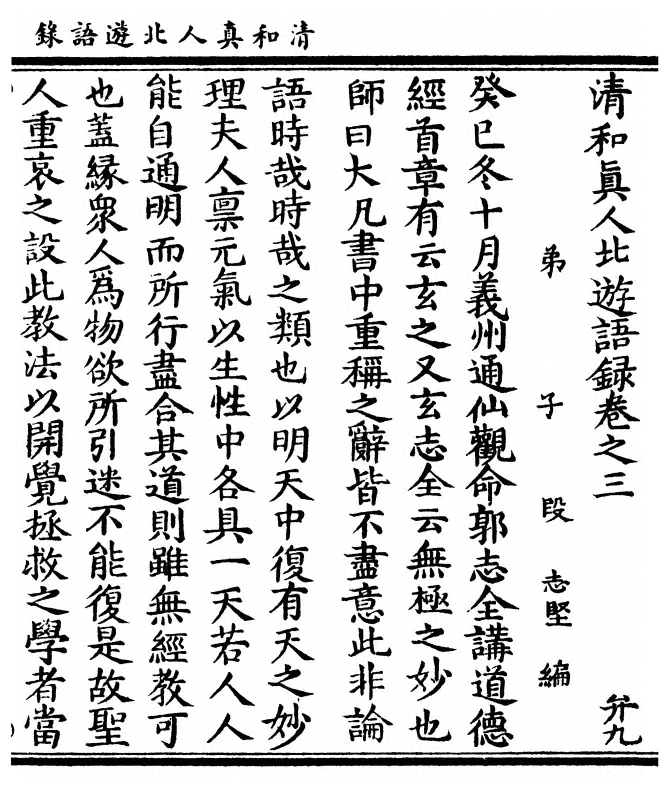 清和真人北遊語錄
清和眞人北遊語録卷之三
弁九
弟子段志堅編
癸巳冬十月義州通仙觀命郭志全講道德
經首章有云玄之又玄志全云無極之妙也
師曰大凡書中重稱之辭皆不盡意此非論
語時哉時哉之類也以明天中復有天之妙
理夫人禀元氣以生性中各具一天若人人
能自通明而所行盡合其道則雖無經教可
也蓋緣衆人爲物欲所引迷不能復是故聖
人重哀之設此教法以開覺拯救之學者當